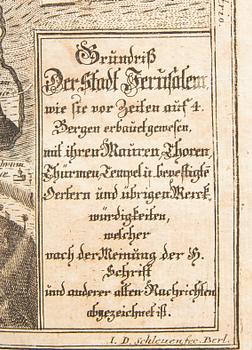 Grundriß
Der Stadt Jerusalem,
wie sie vor Zeiten auf 4.
Bergen erbauet gewesen,
mit ihren Mauren, Thoren,
Thürmen, Tempel u. bevestigte
Oertern und übrigen Merck,
würdigkeiten,
welcher
nach der Meinung der H.
Schrifft
und anderer alten Nachrichten
abgezeichnet ist.
I. D. Schleuen fec. Berl.